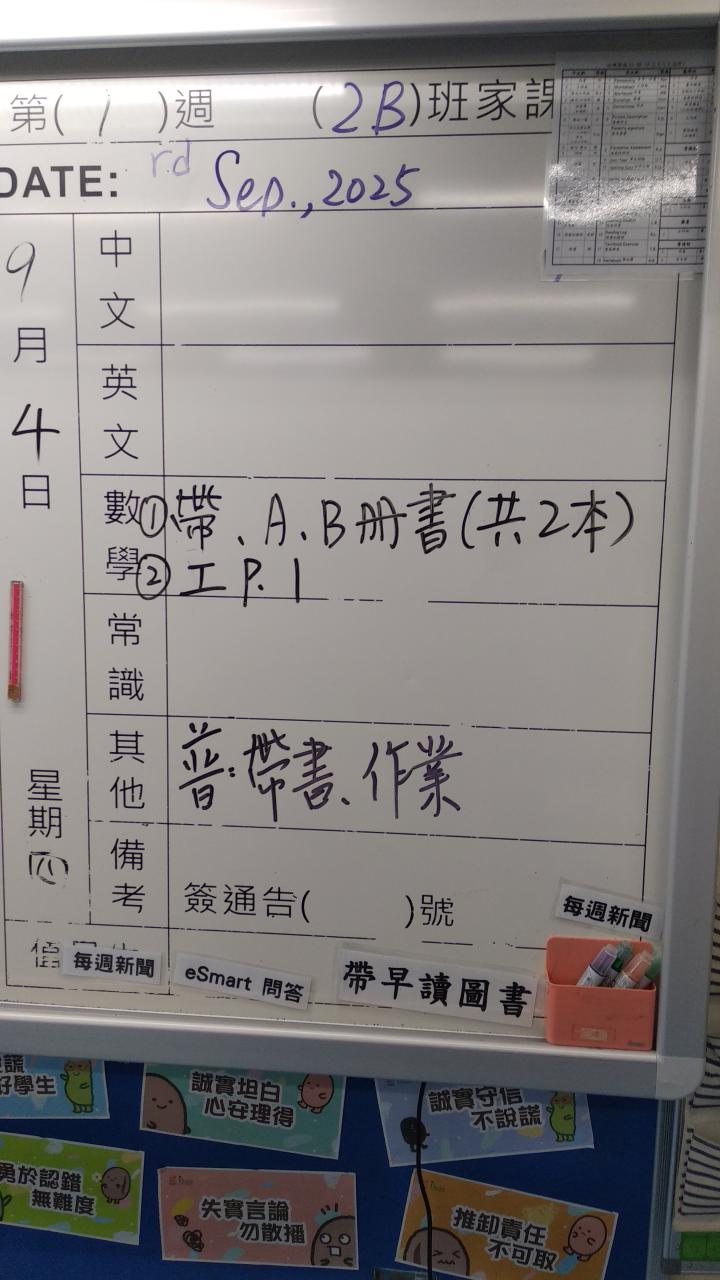 第( 1 )週 (2B)班家課
DATE: rd Sep., 2025
9月4日
星期四
中文
英文
數學 ①帶、A、B册書(共2本)
②工 P.1
常識
其他 普:帶書、作業
備考 簽通告( )號
每週新聞
每週新聞
eSmart 問答
帶早讀圖書
好學生
誠實坦白
心安理得
誠實守信
不說謊
勇於認錯
無難度
失實言論
勿散播
推卸責任
不可取